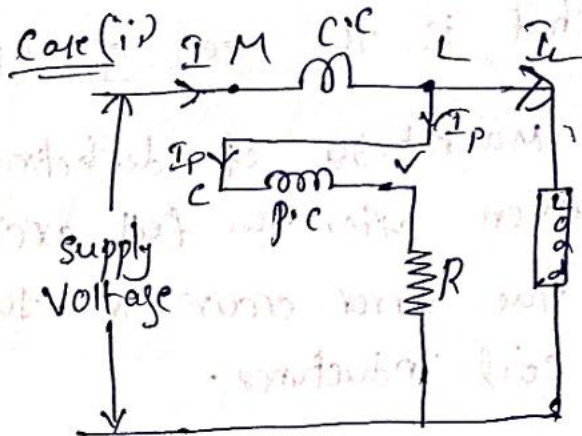 Case (i)
I M C·C L I_L
I_P
I_P
C P·C
Supply
Voltage
R
Load